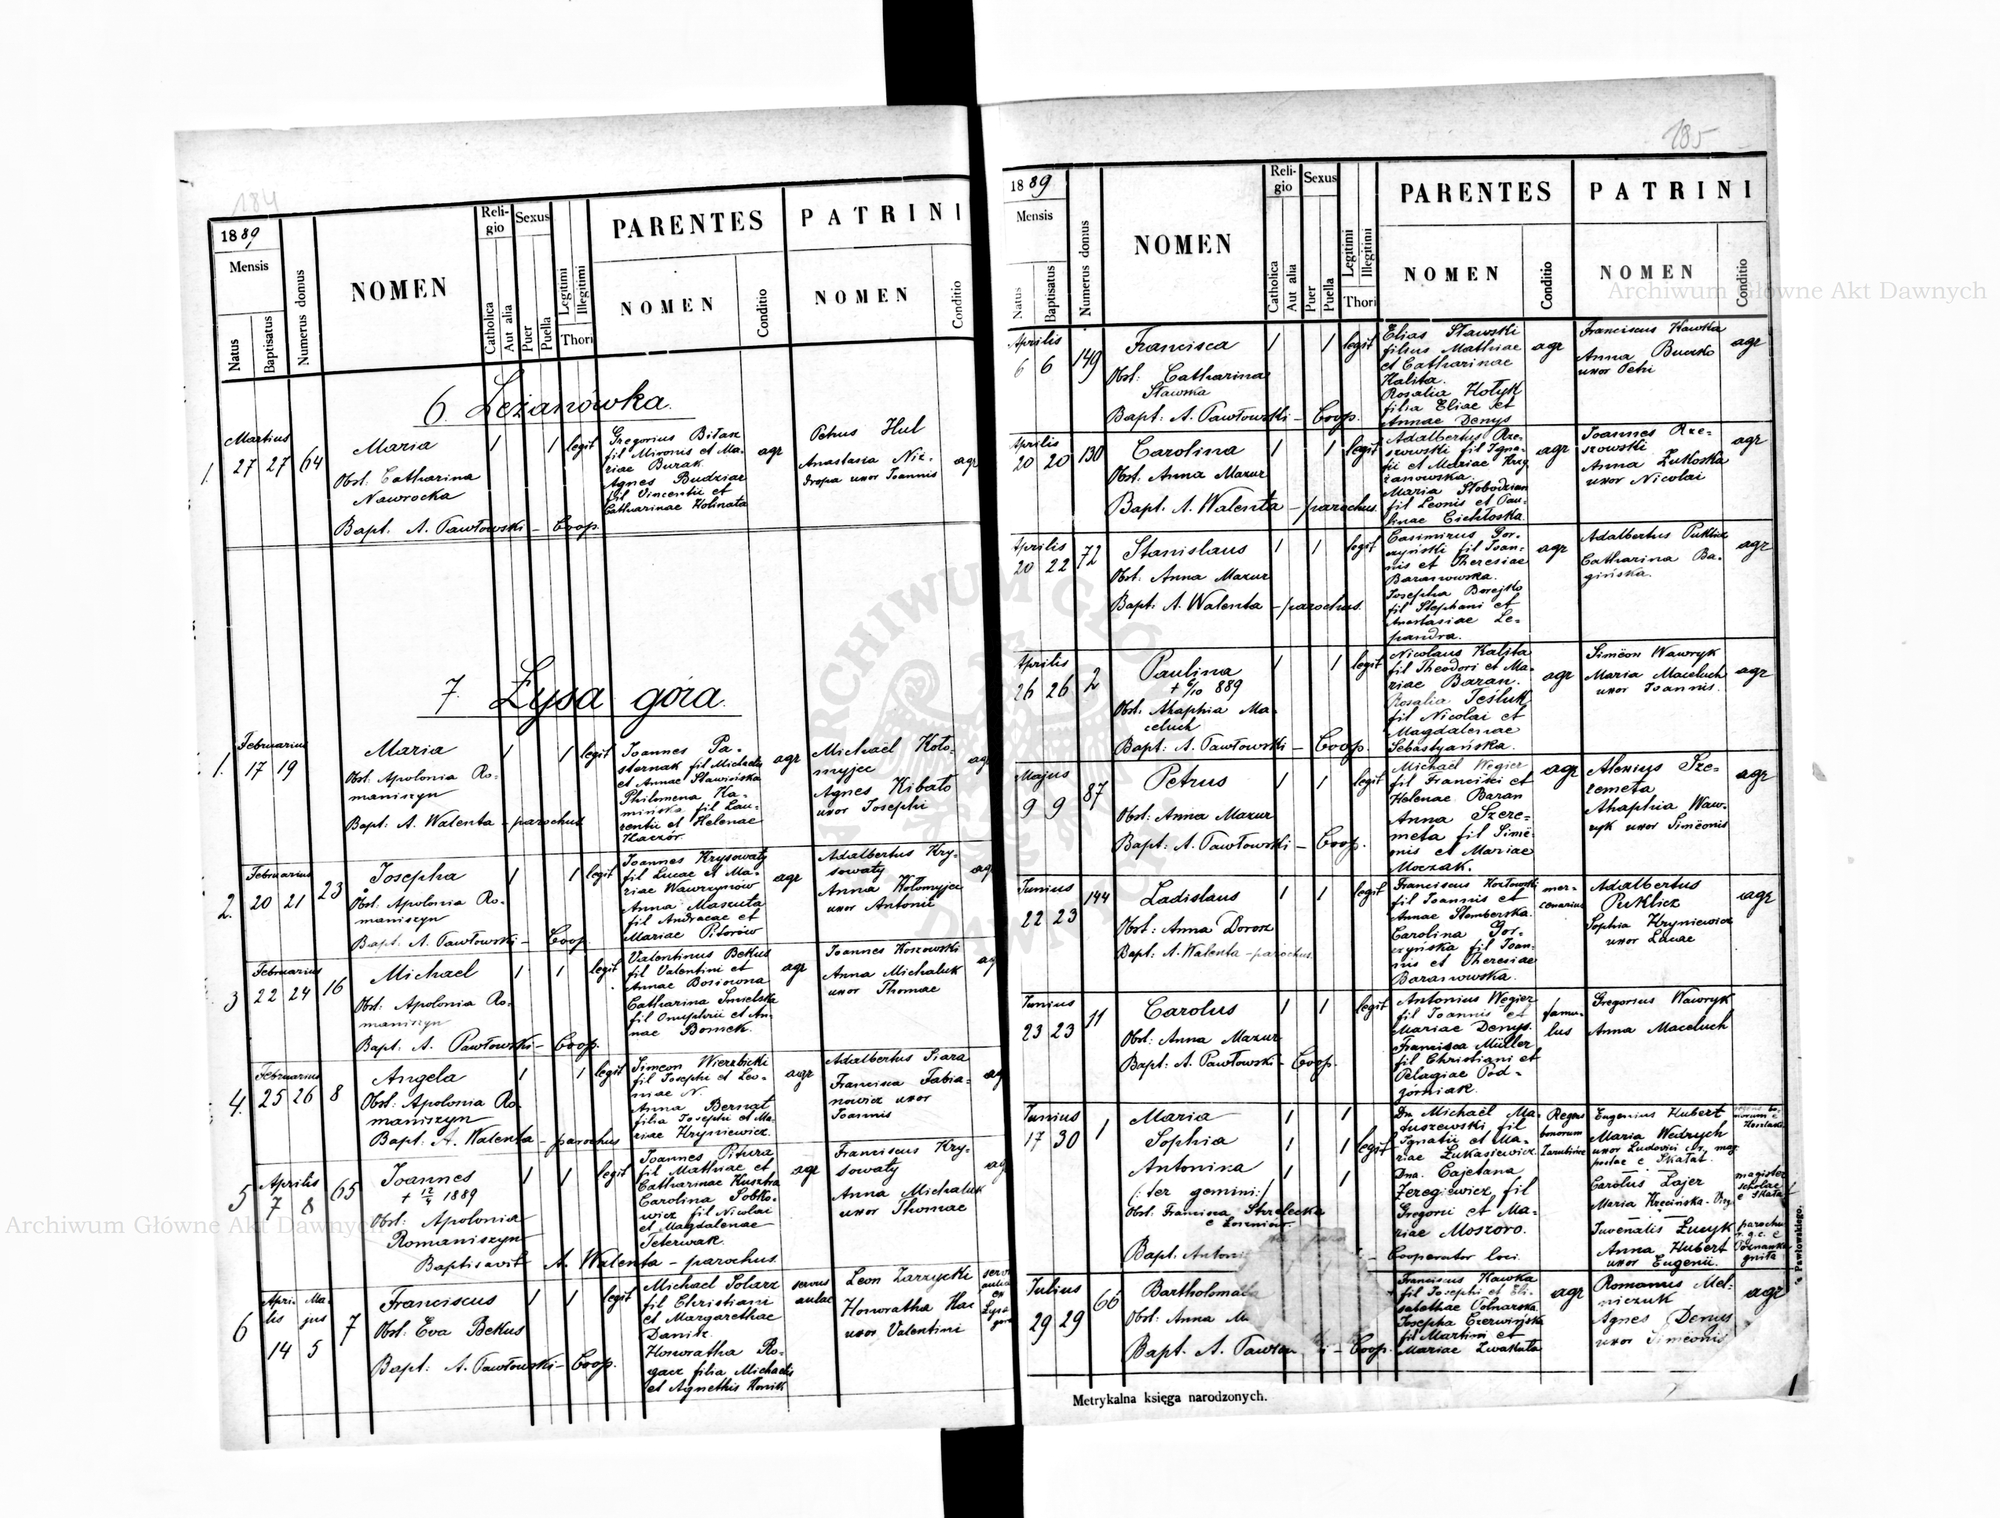 184
1889
Mensis
Natus
Baptisatus
Numerus domus
NOMEN
Reli-
gio
Catholica
Aut alia
Sexus
Puer
Puella
Legitimi
Illegitimi
Thori
PARENTES
NOMEN
Conditio
PATRINI
NOMEN
Conditio
6. Leżanówka.
1.
Martius
27 27 64
Maria
Obst. Catharina
Nawrocka
Bapt. A. Pawłowski – Coop.
1 1 legit
Gregorius Biłan
fil Mironis et Ma-
riae Burak
Agnes Budziar
fil Vincentii et
Catharinae Kolinata
agr
Petrus Hul
Anastasia Niż-
dropa uxor Joannis
agr
7. Łysa góra.
1.
Februarius
17 19
Maria
Obst. Apolonia Ro-
maniszyn
Bapt: A. Walenta – parochus
1 1 legit
Joannes Pa-
sternak fil Michaelis
et Annae Sławińska
Philomena Ka-
mińska fil Lau-
rentii et Helenae
Kaczór
agr
Michael Koło-
myjec
Agnes Kibało
uxor Josephi
agr
2.
Februarius
20 21 23
Josepha
Obst. Apolonia Ro-
maniszyn
Bapt. A. Pawłowski – Coop.
1 1 legit
Joannes Krysowaty
fil Lucae et Ma-
riae Wawrzynów
Anna Masuta
fil Andreae et
Mariae Pitorów
agr
Adalbertus Kry-
sowaty
Anna Kołomyjec
uxor Antonii
agr
3
Februarius
22 24 16
Michael
Obst. Apolonia Ro-
maniszyn
Bapt. A. Pawłowski – Coop.
1 1 legit
Valentinus Bekus
fil Valentini et
Annae Bosiowna
Catharina Smelska
fil Onuphrii et An-
nae Bomek.
agr
Joannes Koszowski
Anna Michaluk
uxor Thomae
ag
4.
Februarius
25 26 8
Angela
Obst: Apolonia Ro-
maniszyn
Bapt: A. Walenta – parochus
1 1 legit
Simeon Wierzbicki
fil Josephi et Leo-
niae N.
Anna Bernat
filia Josephi et Ma-
riae Hryniewicz.
agr
Adalbertus Siara
Francisca Fabia-
nowicz uxor
Joannis
ag
5
Aprilis
7 8 65
Joannes
+ 12/4 1889
Obst: Apolonia
Romaniszyn
Baptisavit A. Walenta – parochus.
1 1 legit
Joannes Pitura
fil Matthiae et
Catharinae Kusztra
Carolina Sobko-
wicz fil Nicolai
et Magdalenae
Teterwak.
agr
Franciscus Kry-
sowaty
Anna Michaluk
uxor Thomae
ag
6
Apri- Ma-
lis jus
14 5 7
Franciscus
Obst: Eva Bekus
Bapt: A. Pawłowski – Coop.
1 1 legit
Michael Solarz
fil Christiani
et Margarethae
Danik.
Honoratha Ro-
gacz filia Michaelis
et Agnethis Konik
servus
aulae
Leon Zarzycki
Honoratha Kac
uxor Valentini
185
1889
Mensis
Natus
Baptisatus
Numerus domus
NOMEN
Reli-
gio
Catholica
Aut alia
Sexus
Puer
Puella
Legitimi
Illegitimi
Thori
PARENTES
NOMEN
Conditio
PATRINI
NOMEN
Conditio
Aprilis
6 6 149
Francisca
Obst: Catharina
Sławska
Bapt: A. Pawłowski – Coop.
1 1 legit
Elias Sławski
filius Mathiae
et Catharinae
Kalita.
Rosalia Hołyk
filia Eliae et
Annae Denys
agr
Franciscus Kawka
Anna Burko
uxor Petri
agr
Aprilis
20 20 130
Carolina
Obst: Anna Mazur
Bapt: A. Walenta – parochus.
1 1 legit
Adalbertus Rze-
szowski fil Igna-
tii et Mariae Krzy
żanowska.
Maria Słobodzian
fil Leonis et Pau-
linae Cichłoska.
agr
Joannes Rze-
szowski
Anna Żukoska
uxor Nicolai
agr
Aprilis
20 22 72
Stanislaus
Obst: Anna Mazur
Bapt: A. Walenta – parochus.
1 1 legit
Casimirus Gor-
czyński fil Joan-
nis et Theresiae
Baranowska.
Josepha Borejko
fil Stephani et
Anastasiae Le-
pandra.
agr
Adalbertus Puklicz
Catharina Ba-
gińska.
agr
Aprilis
26 26 2
Paulina
+ 6/10 889
Obst. Ahaphia Ma-
celuch
Bapt: A. Pawłowski – Coop.
1 1 legit
Nicolaus Kalita
fil Theodori et Ma-
riae Baran.
Rosalia Teśluk
fil Nicolai et
Magdalenae
Sebastyańska.
agr
Simëon Wawryk
Maria Maceluch
uxor Joannis.
agr
Majus
9 9 87
Petrus
Obst: Anna Mazur
Bapt: A. Pawłowski – Coop.
1 1 legit
Michael Węgier
fil Francisci et
Helenae Baran
Anna Szere-
meta fil Simë-
onis et Mariae
Moczak.
agr
Alexius Sze-
remeta
Ahaphia Waw-
ryk uxor Simëonis
agr
Junius
22 23 144
Ladislaus
Obst: Anna Dorosz
Bapt: A. Walenta – parochus.
1 1 legit
Franciscus Kozłowski
fil Joannis et
Annae Słomberska
Carolina Gor-
czyńska fil Joan-
nis et Theresiae
Baranowska.
mer-
cenarius
Adalbertus
Puklicz
Sophia Hryniewicz
uxor Lucae
agr
Junius
23 23 11
Carolus
Obst: Anna Mazur
Bapt: A. Pawłowski – Coop.
1 1 legit
Antonius Węgier
fil Joannis et
Mariae Denys.
Francisca Müller
fil Christiani et
Pelagiae Pod-
górniak.
famu-
lus
Gregorius Wawryk
Anna Maceluch
Junius
17 30 1
Maria
Sophia
Antonina
(: ter gemini :)
Obst: Francisca Strzelecka
Bapt. Antoni – Cooperator loci.
1 1
1 1 legit
1 1
Dn. Michaël Ma-
tuszewski fil
Ignatii et Ma-
riae Łukasiewicz
Dna. Cajetana
Zeregiewicz fil
Gregorii et Ma-
riae Moszoro.
Regens
bonorum
Eugenius Hubert
Maria Wedrych
uxor Ludovici
postae e Skałat.
Carolus Zajer
magister
scholae
e Skałat
Juvenalis Łucyk
Anna Hubert
uxor Eugenii.
Julius
29 29 66
Bartholoma
Obst: Anna M
Bapt. A. Pawłow i – Coop.
Franciscus Kawka
fil Josephi et Eli-
sabethae Tolnarska
Josepha Czerwińska
fil Martini et
Mariae Zwakuta
agr
Romanus Mel-
niczuk
Agnes Denys
uxor Simëonis
agr
Metrykalna księga narodzonych.
Pawłowskiego.
Archiwum Główne Akt Dawnych
Archiwum Główne Akt Dawnych